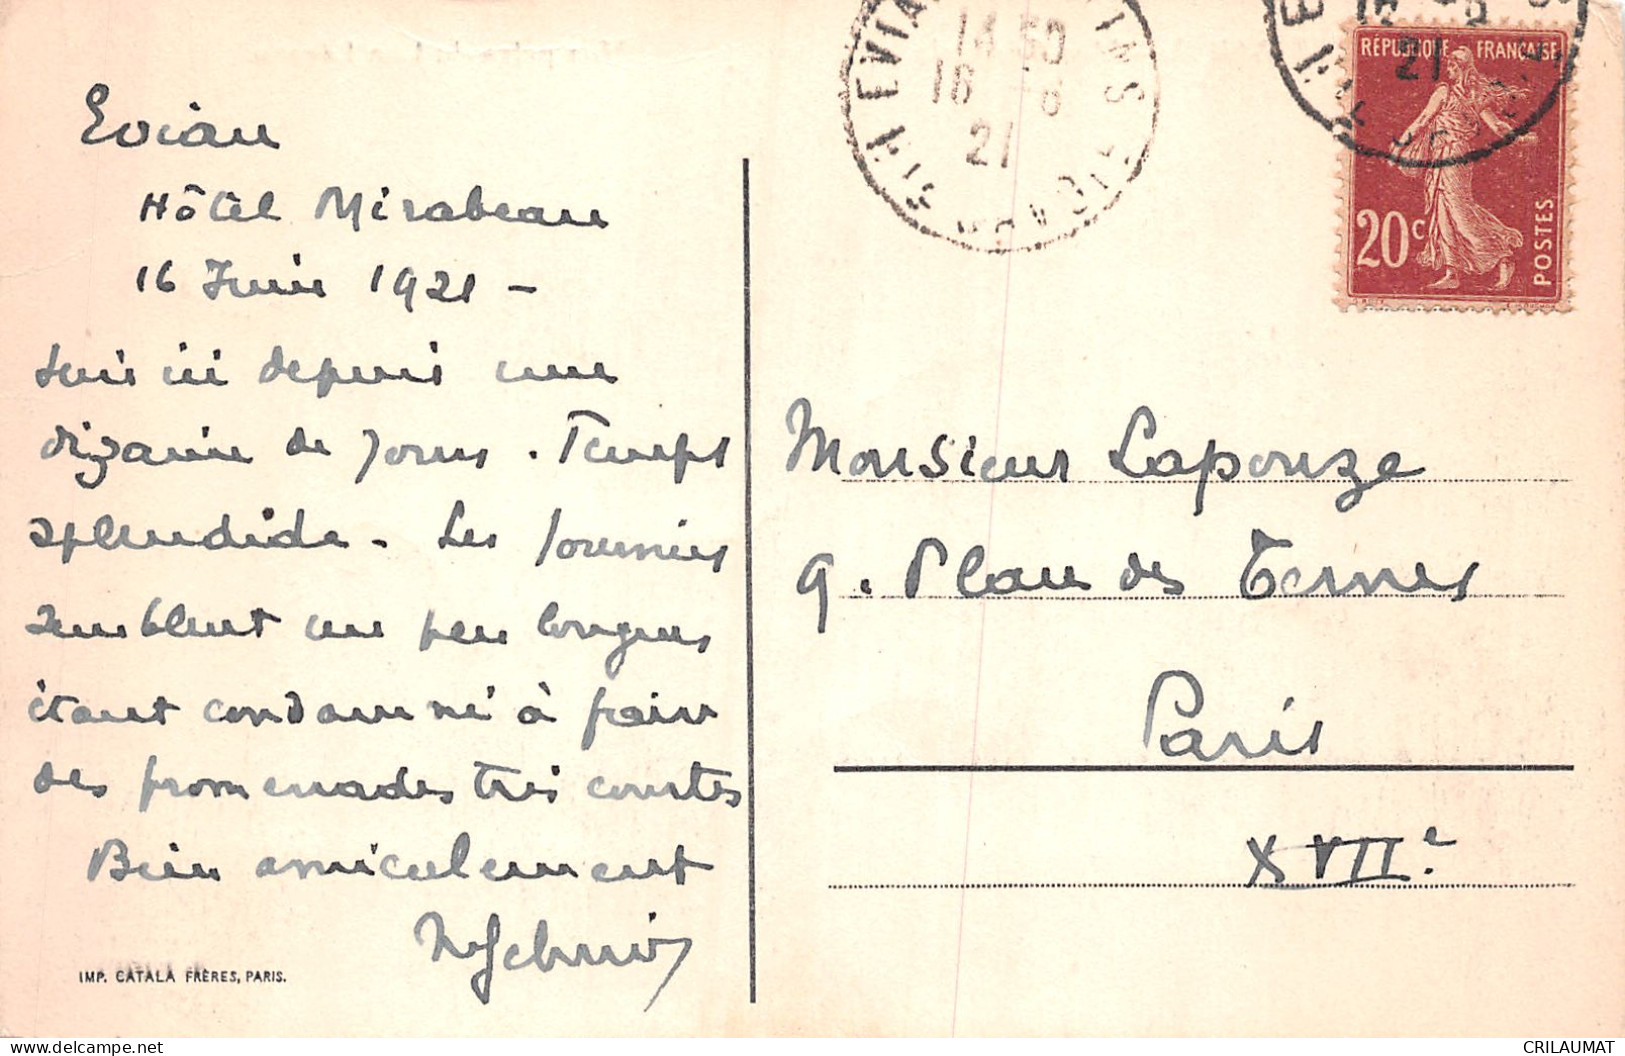 Evian
Hôtel Mirabeau
16 Juin 1921 –
suis ici depuis une
dizaine de jours. Temps
splendide – Les journées
semblent un peu longues
étant condamné à faire
des promenades très courtes
Bien amicalement
IMP. CATALA FRÈRES, PARIS.
EVIAN
BAINS
14 50
16 -6
21
HTE SAVOIE
RÉPUBLIQUE FRANÇAISE
21
20c
POSTES
Monsieur Lapouze
9. Place des Ternes
Paris
XVIIe
CRILAUMAT